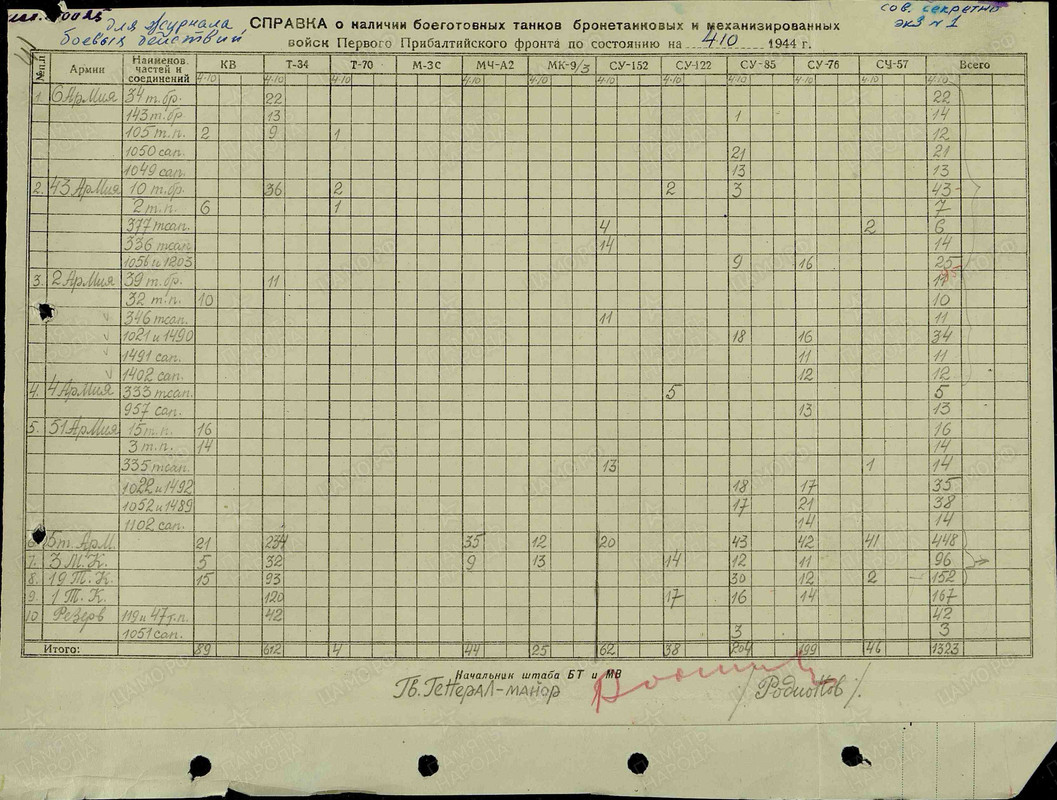 для журнала
боевых действий
сов. секретно
экз № 1
СПРАВКА о наличии боеготовных танков бронетанковых и механизированных
войск Первого Прибалтийского фронта по состоянию на 4.10 1944 г.
№№ п/п Армии Наименов. частей и соединений КВ Т-34 Т-70 М-3С МЧ-А2 МК-9/3 СУ-152 СУ-122 СУ-85 СУ-76 СЧ-57 Всего
4.10 4.10 4.10 4.10 4.10 4.10 4.10 4.10 4.10 4.10 4.10
1. 6 Армия 34 т.бр. 22 22
143 т.бр 13 1 14
105 т.п. 2 9 1 12
1050 сап. 21 21
1049 сап. 13 13
2. 43 Армия 10 т.бр. 36 2 2 3 43
2 т.п. 6 1 7
377 тсап. 4 2 6
336 тсап 14 14
1056 и 1203 9 16 25
3. 2 Армия 39 т.бр. 11 11
32 т.п. 10 10
346 тсап. 11 11
1021 и 1490 18 16 34
1491 сап. 11 11
1402 сап. 12 12
4. 4 Армия 333 тсап. 5 5
957 сап. 13 13
5. 51 Армия 15 т.п. 16 16
3 т.п. 14 14
335 тсап 13 1 14
1022 и 1492 18 17 35
1052 и 1489 17 21 38
1102 сап. 14 14
6. 5 т. Арм. 21 234 35 12 20 43 42 41 448
7. 3 М.К. 5 32 9 13 14 12 11 96
8. 19 Т.К. 15 93 30 12 2 152
9. 1 Т.К. 120 17 16 14 167
10. Резерв 119 и 47 т.п. 42 42
1051 сап. 3 3
Итого: 89 612 4 44 25 62 38 204 199 46 1323
Начальник штаба БТ и МВ
Гв. Генерал-майор /Родионов/.